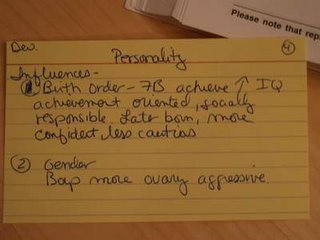 Please note that rep
Dev.
4
Personality
Influences-
① Birth Order - 7B achieve ↑ IQ
achievement oriented, socally
responsible. Later born, more
confident, less cautios
② Gender
more aggressive.